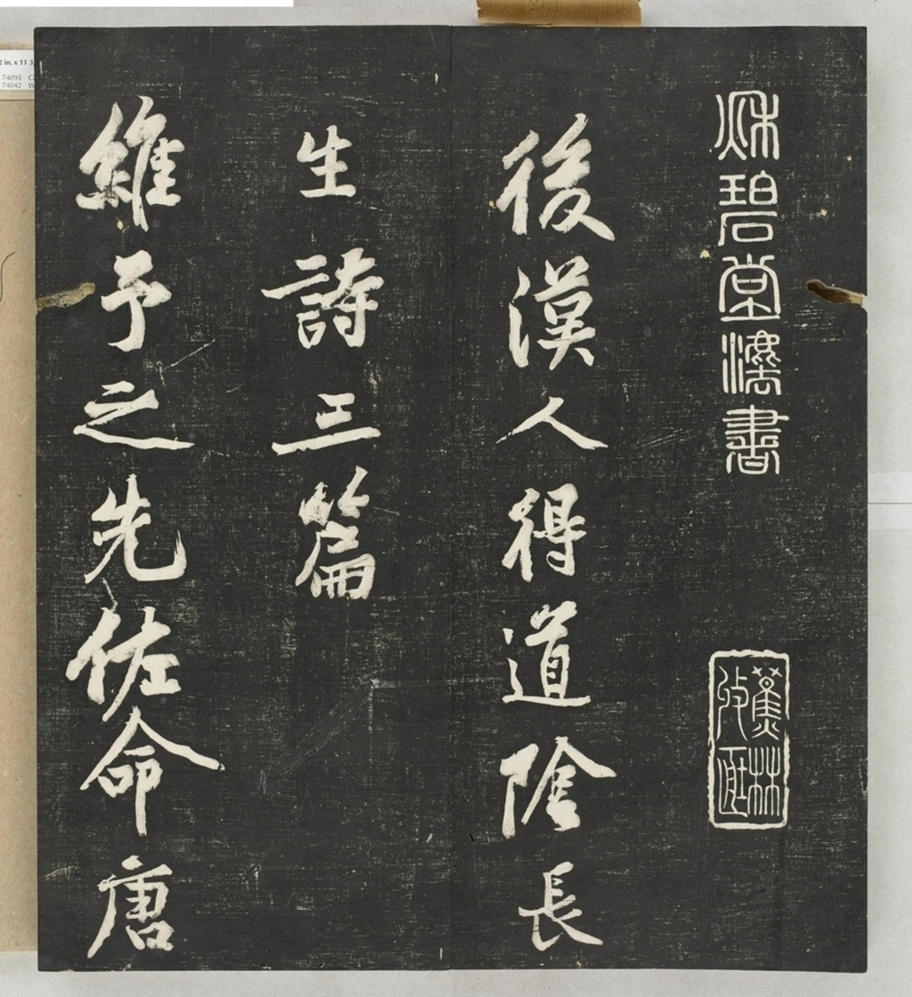 秌碧堂灋書
蕉林
後漢人得道陰長
生詩三篇
維予之先佐命唐
2 in. x 11 3
74095 C
74042 W